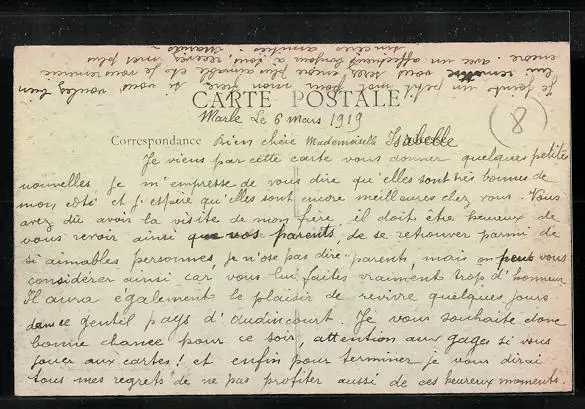 CARTE POSTALE
Marle Le 6 Mars 1919
8
Correspondance Bien chère Mademoiselle Isabelle
Je viens par cette carte vous donner quelques petites
nouvelles, je m'empresse de vous dire qu'elles sont très bonnes de
mon côté et j'espère qu'elles sont encore meilleures chez vous. Vous
avez dû avoir la visite de mon frère, il doit être heureux de
vous revoir ainsi que vos parents, de se retrouver parmi de
si aimables personnes, je n'ose pas dire "parents, mais on peut vous
considérer ainsi car vous lui faites vraiment trop d'honneur
Il aura également le plaisir de revivre quelques jours
dans ce gentil pays d'Audincourt. Je vous souhaite donc
bonne chance pour ce soir, attention aux gages si vous
jouez aux cartes! et enfin pour terminer je vous dirai
tous mes regrets de ne pas profiter aussi de ces heureux moments.
Je joint un petit mot pour mon frère, si vous voulez bien
lui remettre vous serez encore plus aimable et je vous remercie
encore. avec un affectueux bonjour à tous, recevez mes plus
sincères amitiés.